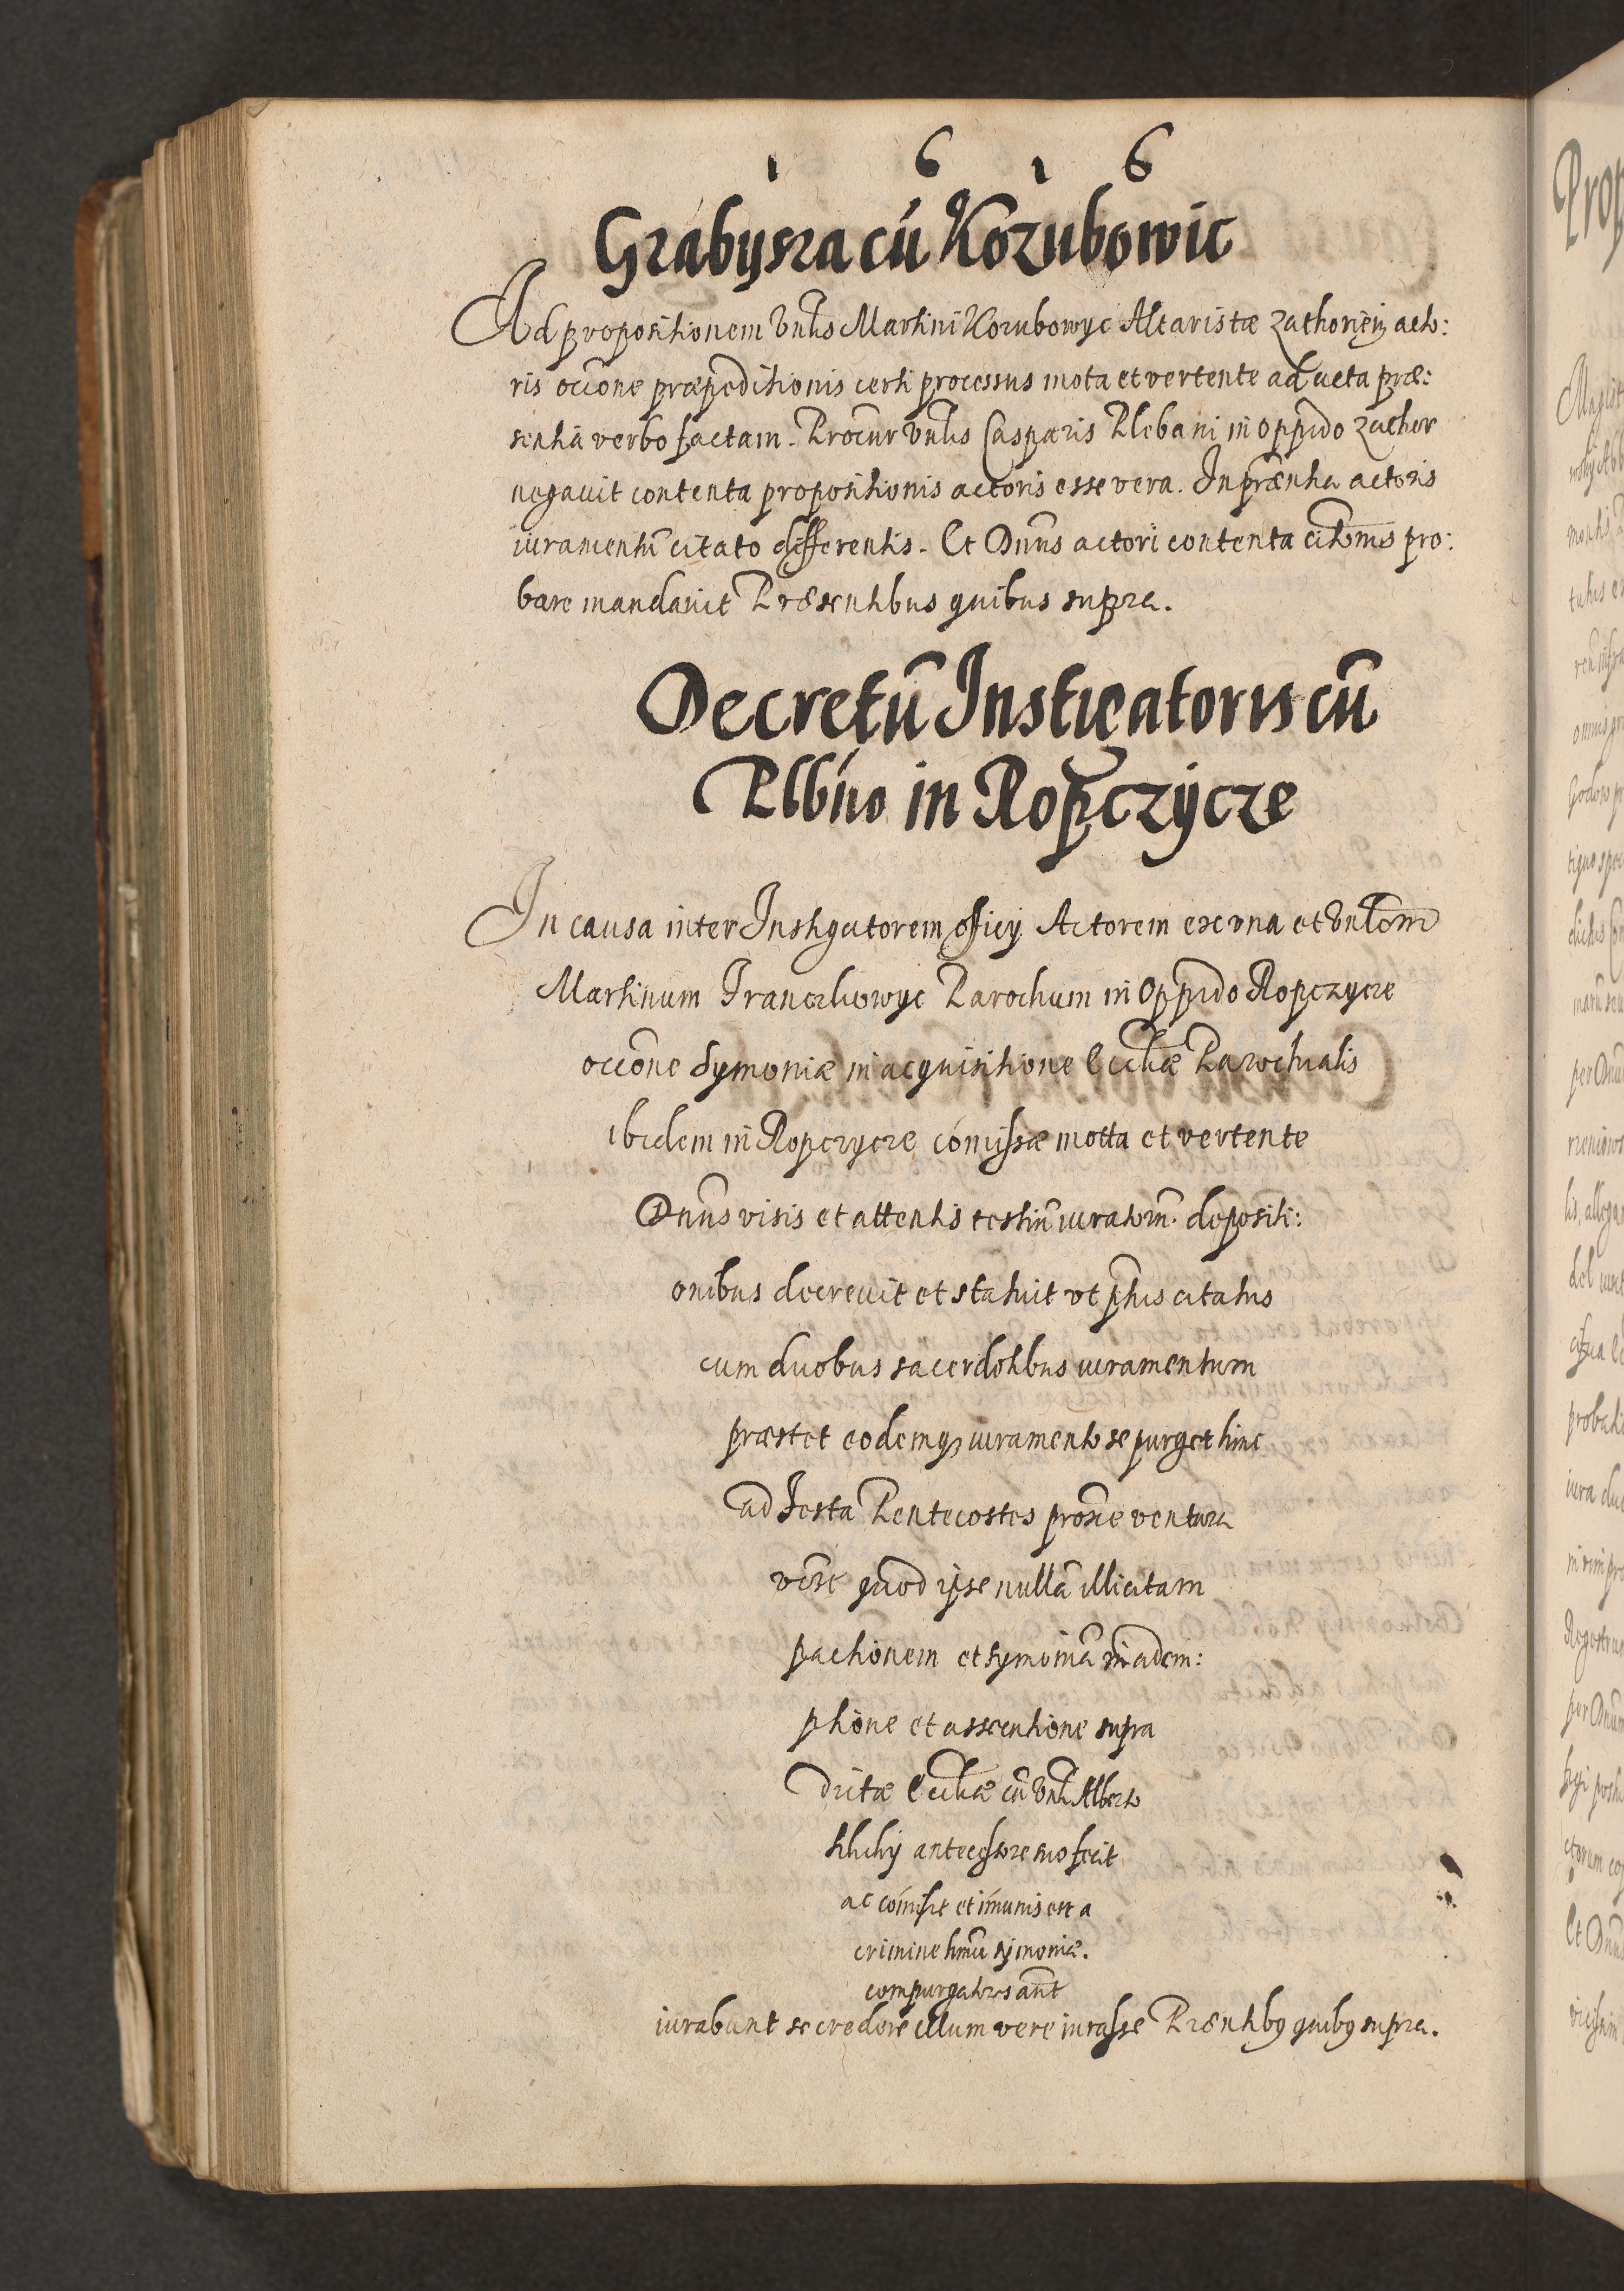 1 6 1 6
Grabysza cū Kozubowic
Ad propositionem Vnlis Martini Kozubowyc Altaristæ Zathorien acto:
ris occõne præpeditionis certi processus mota et vertente ad acta præ:
sentia verbo factam. Procur Vnlis Casparis Plebani in Oppido Zathor
negauit contenta propositionis actoris esse vera. In præntia actoris
iuramentū citato differentis. Et Dnns actori contenta citõnis pro:
bare mandauit Præsentibus quibus supra.
Decretū Instigatoris cū
Plbno in Ropczycze
In causa inter Instigatorem officy Actorem ex vna et Vnlem
Martinum Franczkowyc Parochum in Oppido Ropczycze
occõne Symoniæ in acquisitione Eccliæ Parochialis
ibidem in Ropczycze cōmissæ motta et vertente
Dnns visis et attentis testiū iuratorū depositi:
onibus decreuit et statuit vt pntis citatus
cum duobus sacerdotibus iuramentum
præstet eodemq iuramento se purget hinc
ad Festa Pentecostes proxē ventura
quod ipse nullā illicitam
pactionem et symoniā in adem:
ptione et assecutione supra
dictæ Eccliæ cū Vnli Alberto
antecessore suo fecit
ac cōmisit et imunis est a
crimine hmōi symoniæ.
compurgatores aūt
iurabunt se credere illum vere iurasse Præntibq quibq supra.